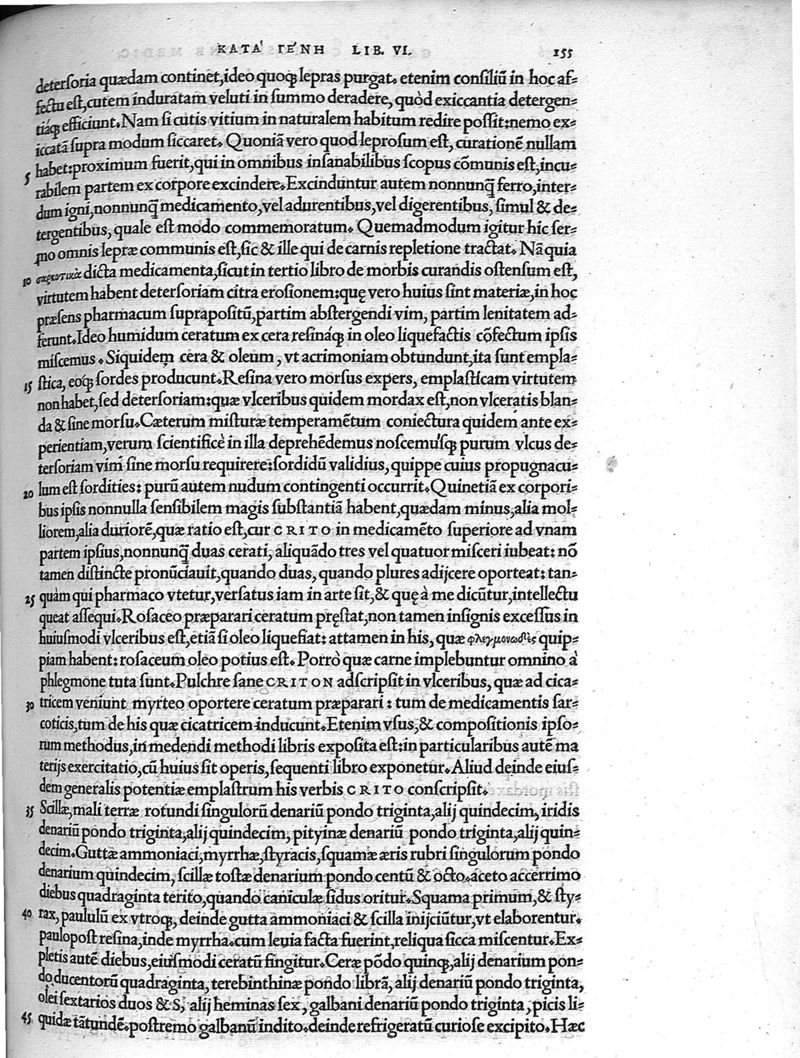 ΚΑΤΑ' ΓΕ'ΝΗ LIB. VI. 155
detersoria quædam continet, ideo quoq; lepras purgat. etenim consiliū in hoc af-
fectu est, cutem induratam veluti in summo deradere, quòd exiccantia detergen-
tiáq; efficiunt. Nam si cutis vitium in naturalem habitum redire possit: nemo ex-
iccatā supra modum siccaret. Quoniā vero quod leprosum est, curationē nullam
5 habet: proximum fuerit, qui in omnibus insanabilibus scopus cōmunis est, incu-
rabilem partem ex corpore excindere. Excinduntur autem nonnunq̄ ferro, inter-
dum igni, nonnunq̄ medicamento, vel adurentibus, vel digerentibus, simul & de-
tergentibus, quale est modo commemoratum. Quemadmodum igitur hic ser-
mo omnis lepræ communis est, sic & ille qui de carnis repletione tractat. Nā quia
10 σαρκωτικὰ dicta medicamenta, sicut in tertio libro de morbis curandis ostensum est,
virtutem habent detersoriam citra erosionem: quę vero huius sint materiæ, in hoc
præsens pharmacum suprapositū, partim abstergendi vim, partim lenitatem ad-
ferunt. Ideo humidum ceratum ex cera resináq; in oleo liquefactis cōfectum ipsis
miscemus. Siquidem cera & oleum, vt acrimoniam obtundunt, ita sunt empla-
15 stica, eoq; sordes producunt. Resina vero morsus expers, emplasticam virtutem
non habet, sed detersoriam: quæ vlceribus quidem mordax est, non vlceratis blan-
da & sine morsu. Cæterum misturæ temperamētum coniectura quidem ante ex-
perientiam, verum scientificè in illa deprehēdemus noscemúsq; purum vlcus de-
tersoriam vim sine morsu requirere: sordidū validius, quippe cuius propugnacu-
20 lum est sordities: purū autem nudum contingenti occurrit. Quinetiā ex corpori-
bus ipsis nonnulla sensibilem magis substantiā habent, quædam minus, alia mol-
liorem, alia duriorē, quæ ratio est, cur CRITO in medicamēto superiore ad vnam
partem ipsius, nonnunq̄ duas cerati, aliquādo tres vel quatuor misceri iubeat: nō
tamen distincte pronūciauit, quando duas, quando plures adijcere oporteat: tan-
25 quàm qui pharmaco vtetur, versatus iam in arte sit, & quę à me dicūtur, intellectu
queat assequi. Rosaceo præparari ceratum pręstat, non tamen insignis excessus in
huiusmodi vlceribus est, etiā si oleo liquefiat: attamen in his, quæ φλεγμονωδὲς quip-
piam habent: rosaceum oleo potius est. Porrò quæ carne implebuntur omnino à
phlegmone tuta sunt. Pulchre sane CRITON adscripsit in vlceribus, quæ ad cica-
30 tricem veniunt myrteo oportere ceratum præparari: tum de medicamentis sar-
coticis, tum de his quæ cicatricem inducunt. Etenim vsus, & compositionis ipso-
rum methodus, in medendi methodi libris exposita est: in particularibus autē ma
terijs exercitatio, cū huius sit operis, sequenti libro exponetur. Aliud deinde eius-
dem generalis potentiæ emplastrum his verbis CRITO conscripsit.
35 Scillæ, mali terræ rotundi singulorū denariū pondo triginta, alij quindecim, iridis
denariū pondo triginta, alij quindecim, pityinæ denariū pondo triginta, alij quin-
decim. Guttæ ammoniaci, myrrhæ, styracis, squamæ æris rubri singulorum pondo
denarium quindecim, scillæ tostæ denarium pondo centū & octo. aceto accerrimo
diebus quadraginta terito, quando caniculæ sidus oritur. Squama primum, & sty-
40 rax, paululū ex vtroq; deinde gutta ammoniaci & scilla inijciūtur, vt elaborentur.
paulopost resina, inde myrrha. cum leuia facta fuerint, reliqua sicca miscentur. Ex-
pletis autē diebus, eiusmodi ceratū fingitur. Ceræ pōdo quinq; alij denarium pon-
do ducentorū quadraginta, terebinthinæ pondo librā, alij denariū pondo triginta,
olei sextarios duos & S, alij heminas sex, galbani denariū pondo triginta, picis li-
45 quidæ tātundē. postremo galbanū indito. deinde refrigeratū curiose excipito. Hæc